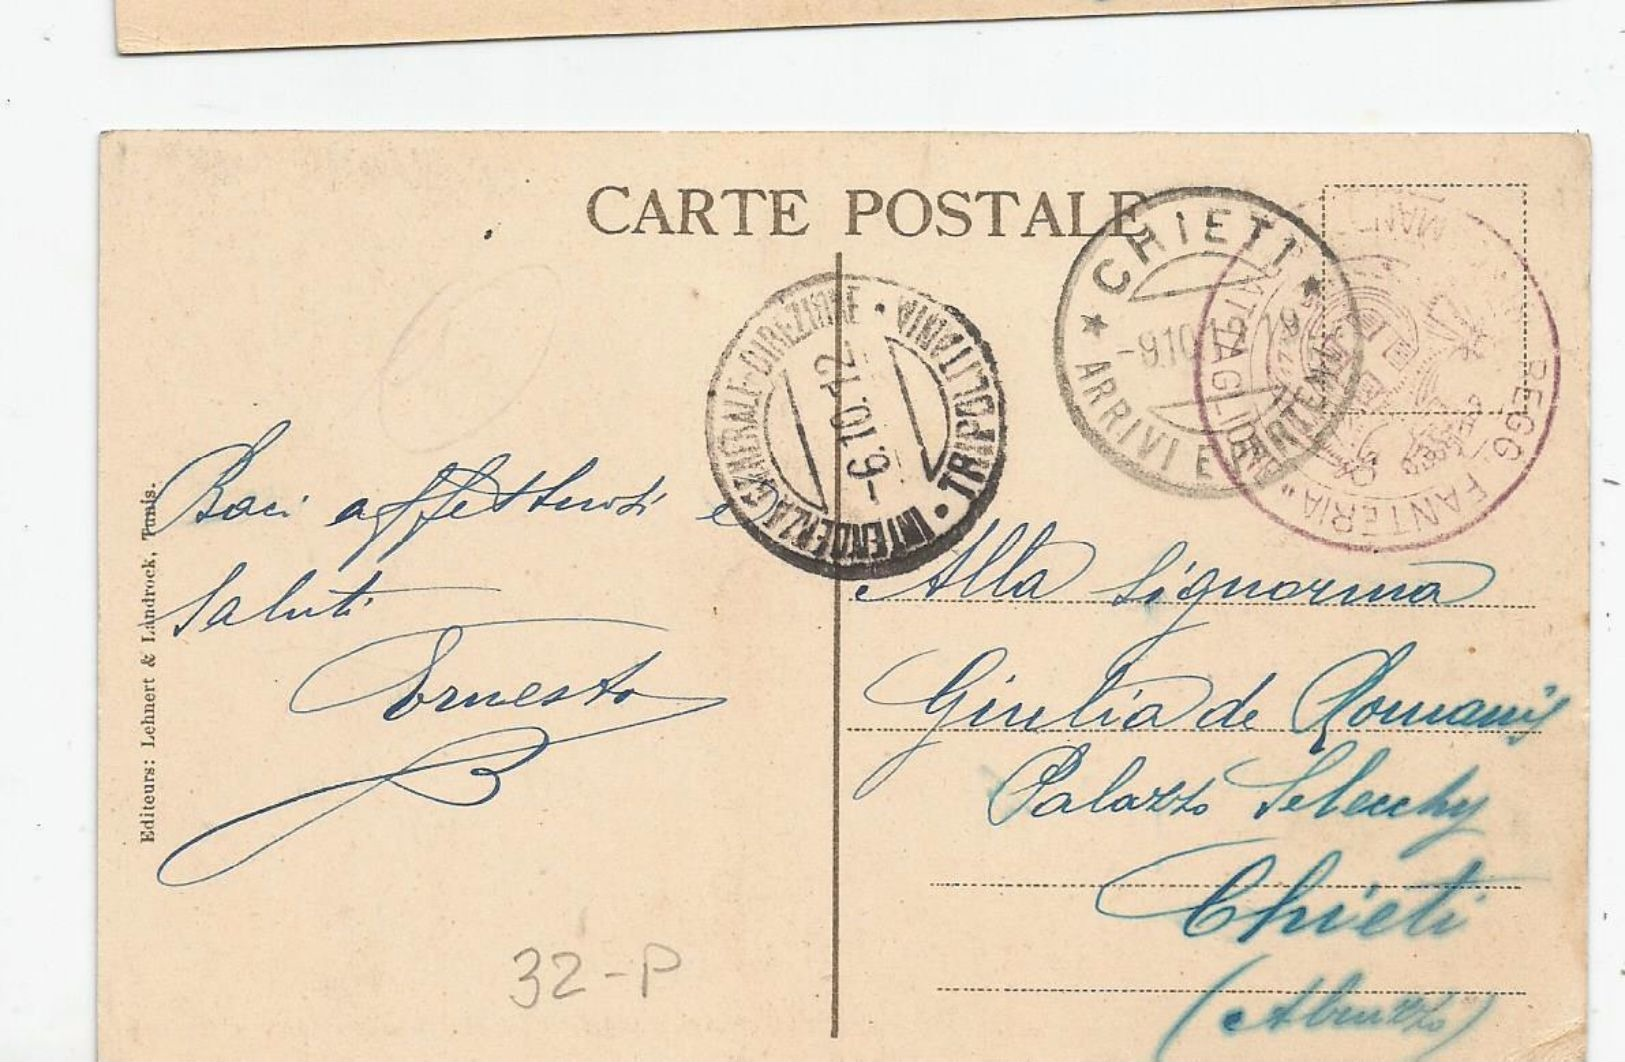 CARTE POSTALE
CHIETI
-9.10
ARRIVI E PARTENZE
INTENDENZA GENERALE-DIREZIONE · TRIPOLITANIA ·
-6.10.12
REGG. FANTERIA"
BATTAGLI
MAN
Baci affettuosi e
Saluti
Ernesto
Alla Signorina
Giulia de Romanis
Palazzo
Chieti
(Abruzzo)
Editeurs: Lehnert & Landrock, Tunis.
32-P